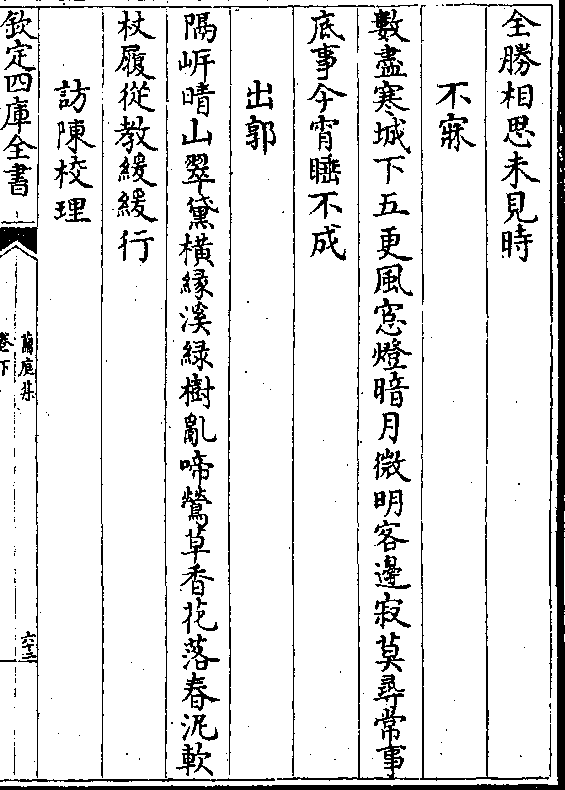 全勝相思未見時
不寐
數盡寒城下五更風窓燈暗月微明客邊寂莫尋常事
底事今宵睡不成
出郭
隔岍晴山翠黛横緣溪綠樹亂啼鶯草香花落春泥軟
杖履從教緩緩行
訪陳校理
欽定四庫全書
蘭庭集
卷下
六十三